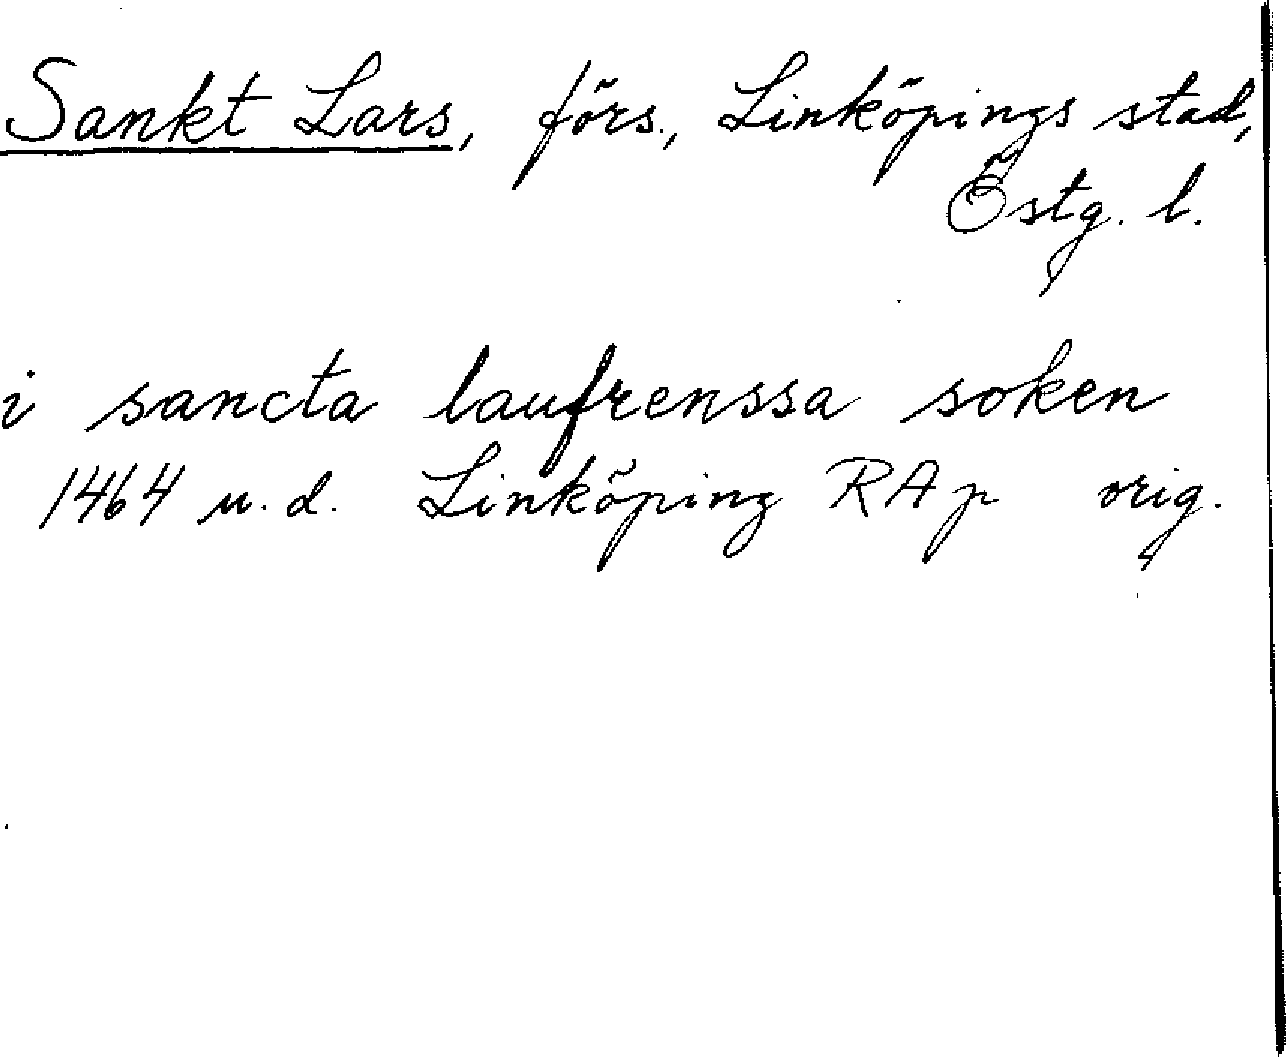 Sankt Lars, förs., Linköpings stad,
Östg. l.
i sancta laufrenssa soken
1464 u.d. Linköping RAp orig.